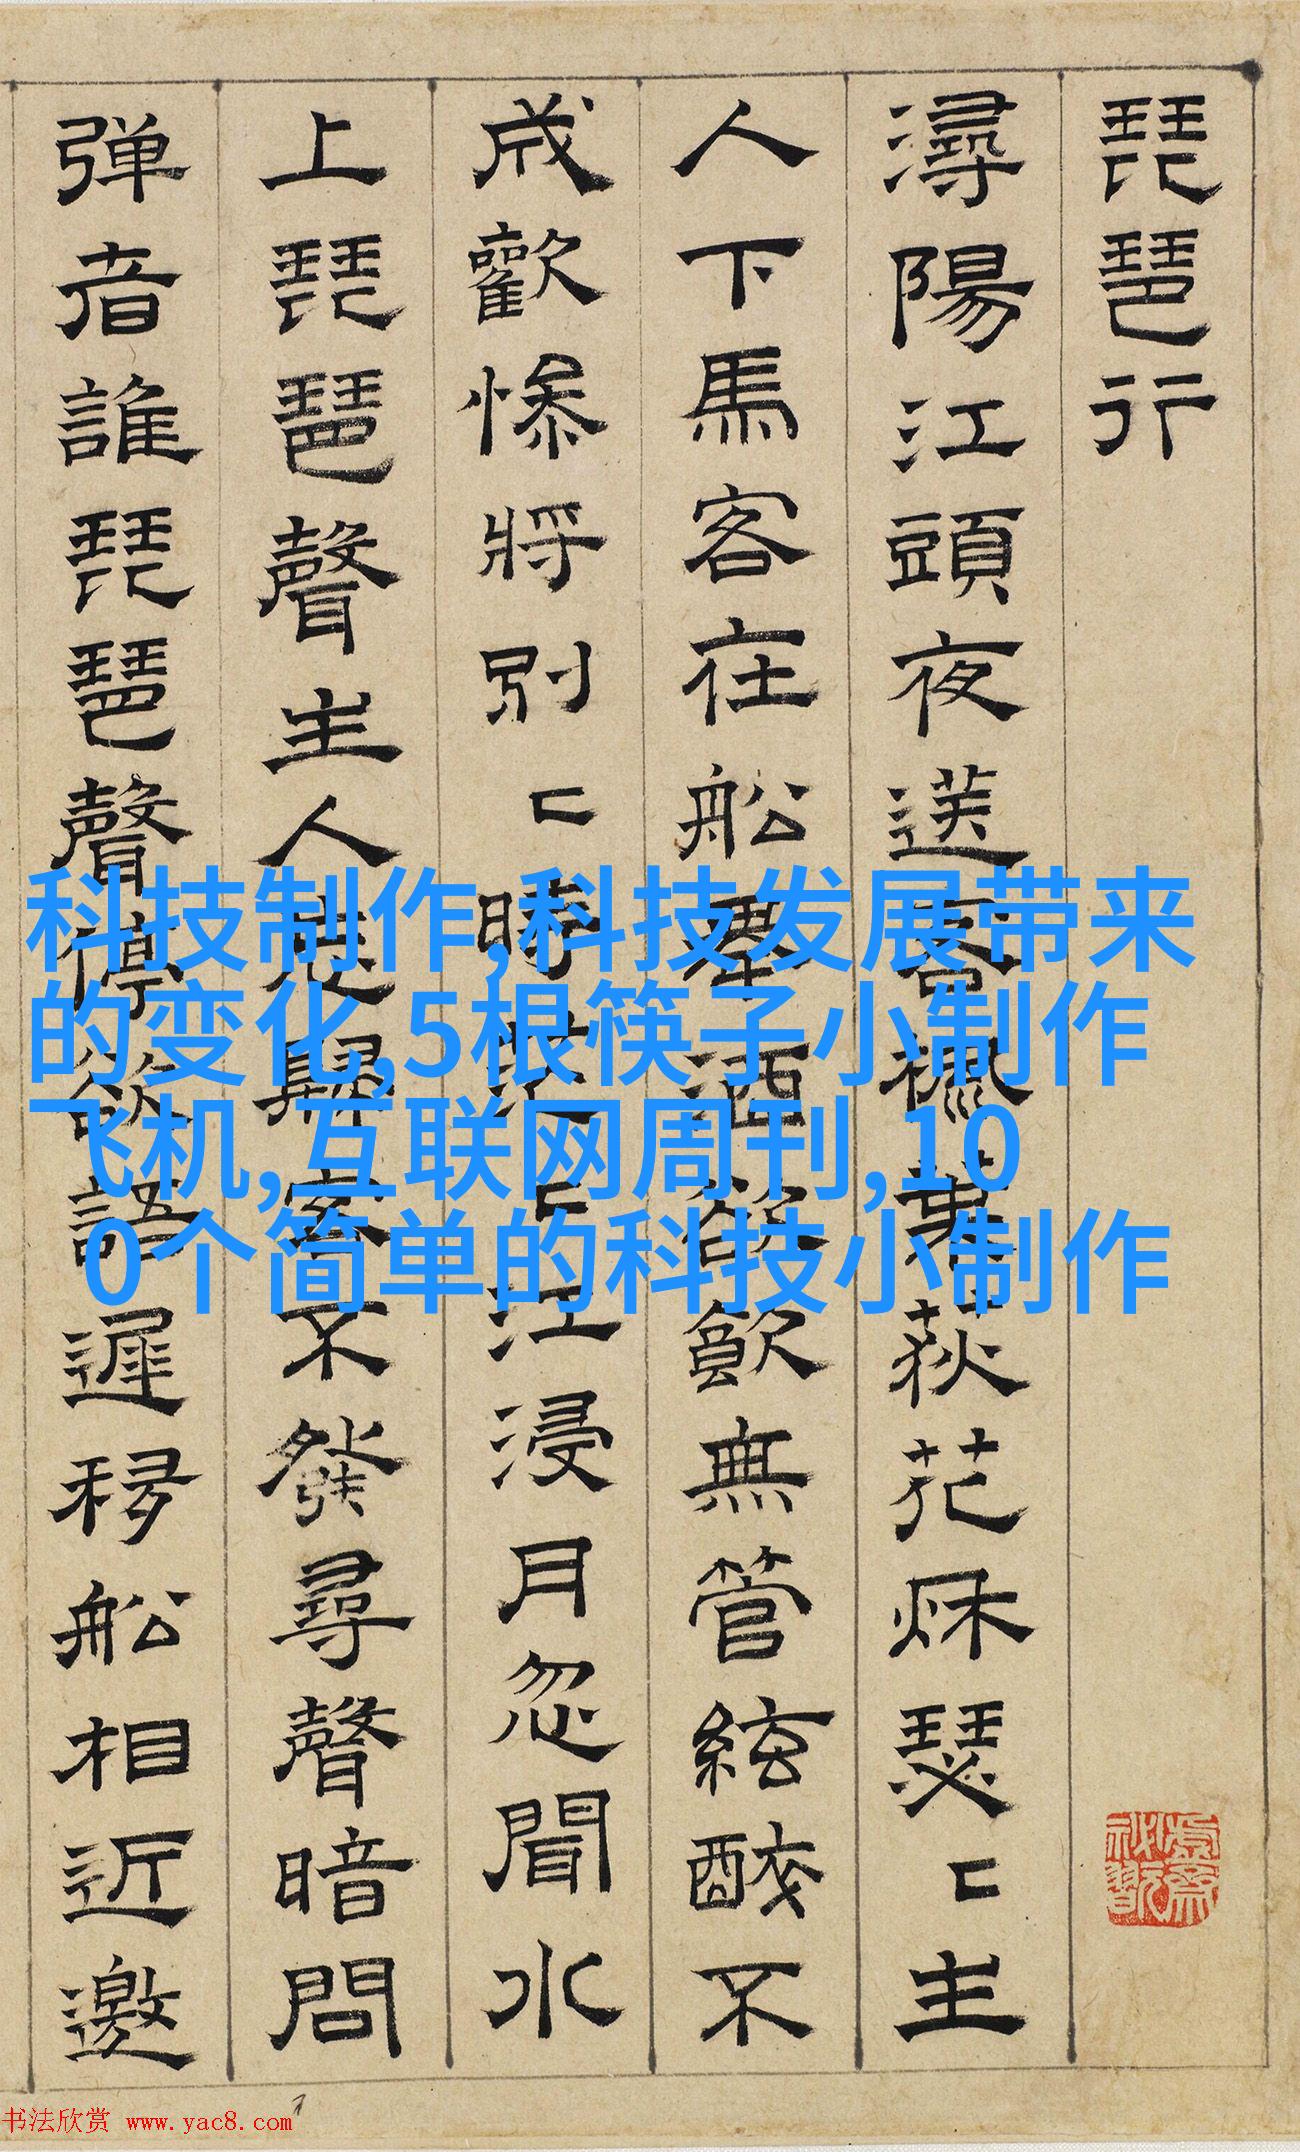 琵琶行
潯陽江頭夜送客楓葉荻花秌瑟〻主
人下馬客在船舉酒欲飲無管絃醉不
成歡慘將別〻時茫〻江浸月忽聞水
上琵琶聲主人忘歸客不發尋聲暗問
弹者誰琵琶聲停欲語遲移船相近邀
科技制作,科技发展带来
的变化,5根筷子小制作
飞机,互联网周刊,10
0个简单的科技小制作
书法欣赏 www.yac8.com